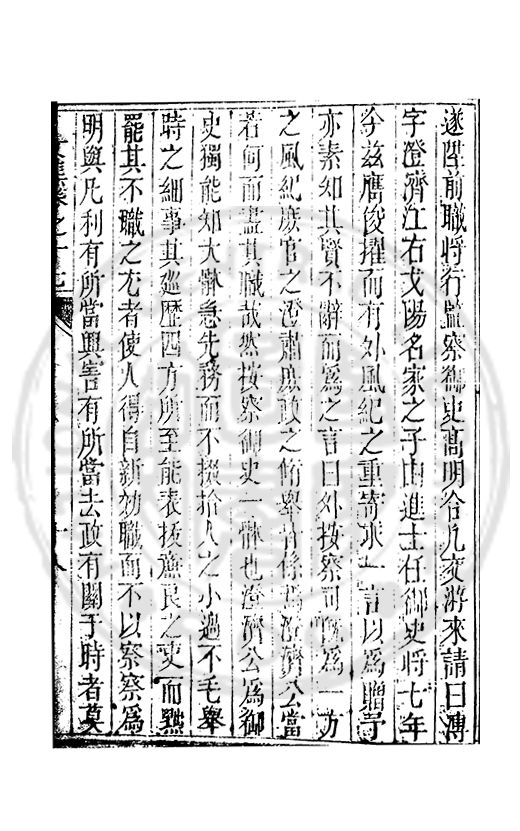 遂陞前職將行監察御史高明合凡交游來請曰溥
字澄濟江右弋陽名家之子由進士任御史將七年
今兹膺俊擢而有外風紀之重寄求一言以爲贈予
亦素知其賢不辭而爲之言曰外按察司職爲一方
之風紀庶官之澄肅庶政之脩舉皆係焉澄濟公當
若何而盡其職哉然按察御史一體也澄濟公爲御
史獨能知大體急先務而不掇拾人之小過不毛舉
時之細事其廵歷四方所至能表拔廉良之吏而黜
罷其不職之尤者使人得自新効職而不以察察爲
明與凡利有所當興害有所當去政有關于時者莫